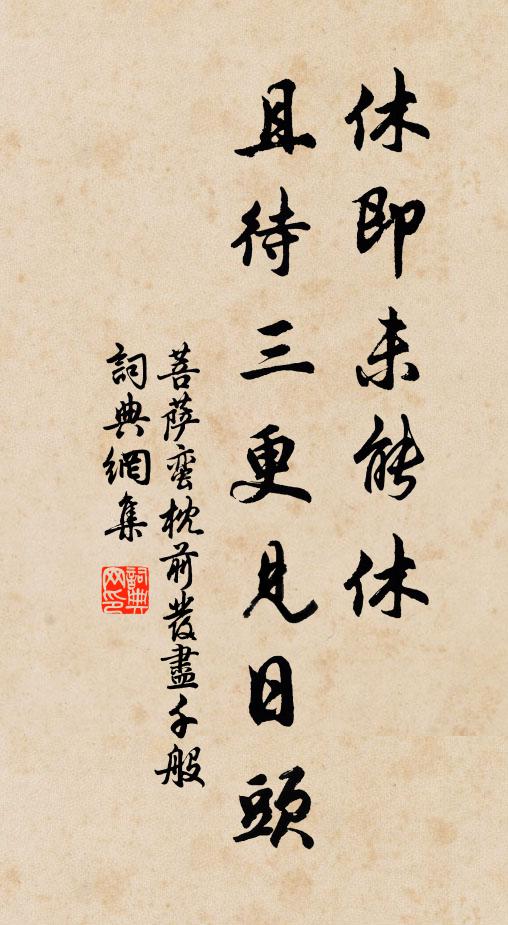 休即未能休
且待三更見日頭
菩薩蠻枕前發盡千般
詞典網集
詞典网印